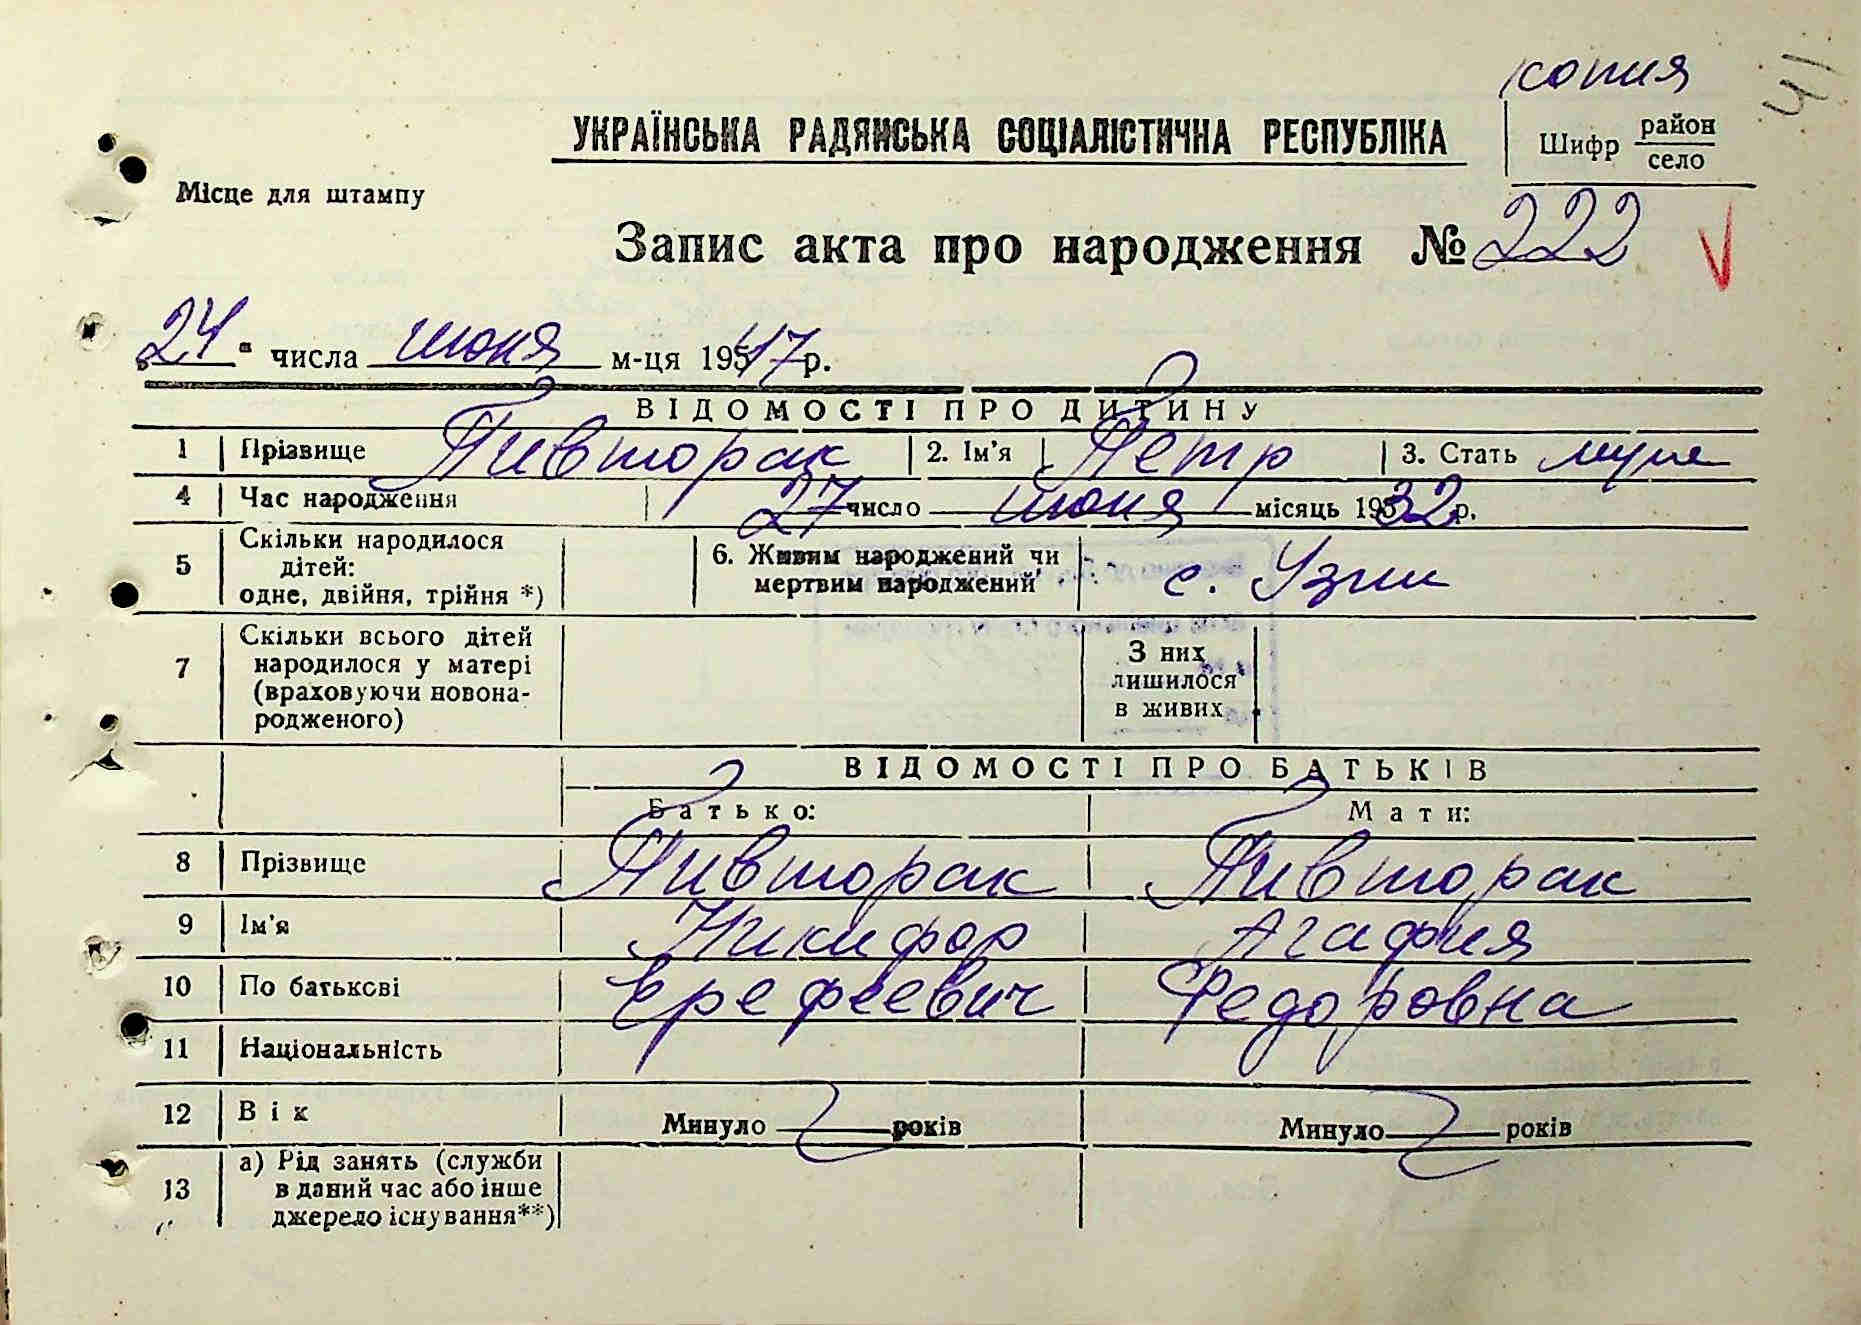 копия
41
УКРАЇНСЬКА РАДЯНСЬКА СОЦІАЛІСТИЧНА РЕСПУБЛІКА
Шифр район
село
Місце для штампу
Запис акта про народження № 222
„24" числа июня м-ця 1947 р.
ВІДОМОСТІ ПРО ДИТИНУ
1 Прізвище Пивторак 2. Ім'я Петр 3. Стать муж
4 Час народження 27 число июня місяць 1932 р.
5 Скільки народилося дітей: одне, двійня, трійня *) 6. Живим народжений чи мертвим народжений с. Узин
7 Скільки всього дітей народилося у матері (враховуючи новонародженого) З них лишилося в живих
ВІДОМОСТІ ПРО БАТЬКІВ
Батько: Мати:
8 Прізвище Пивторак Пивторак
9 Ім'я Никифор Агафия
10 По батькові Ерефеевич Федоровна
11 Національність
12 Вік Минуло років Минуло років
13 а) Рід занять (служби в даний час або інше джерело існування**)